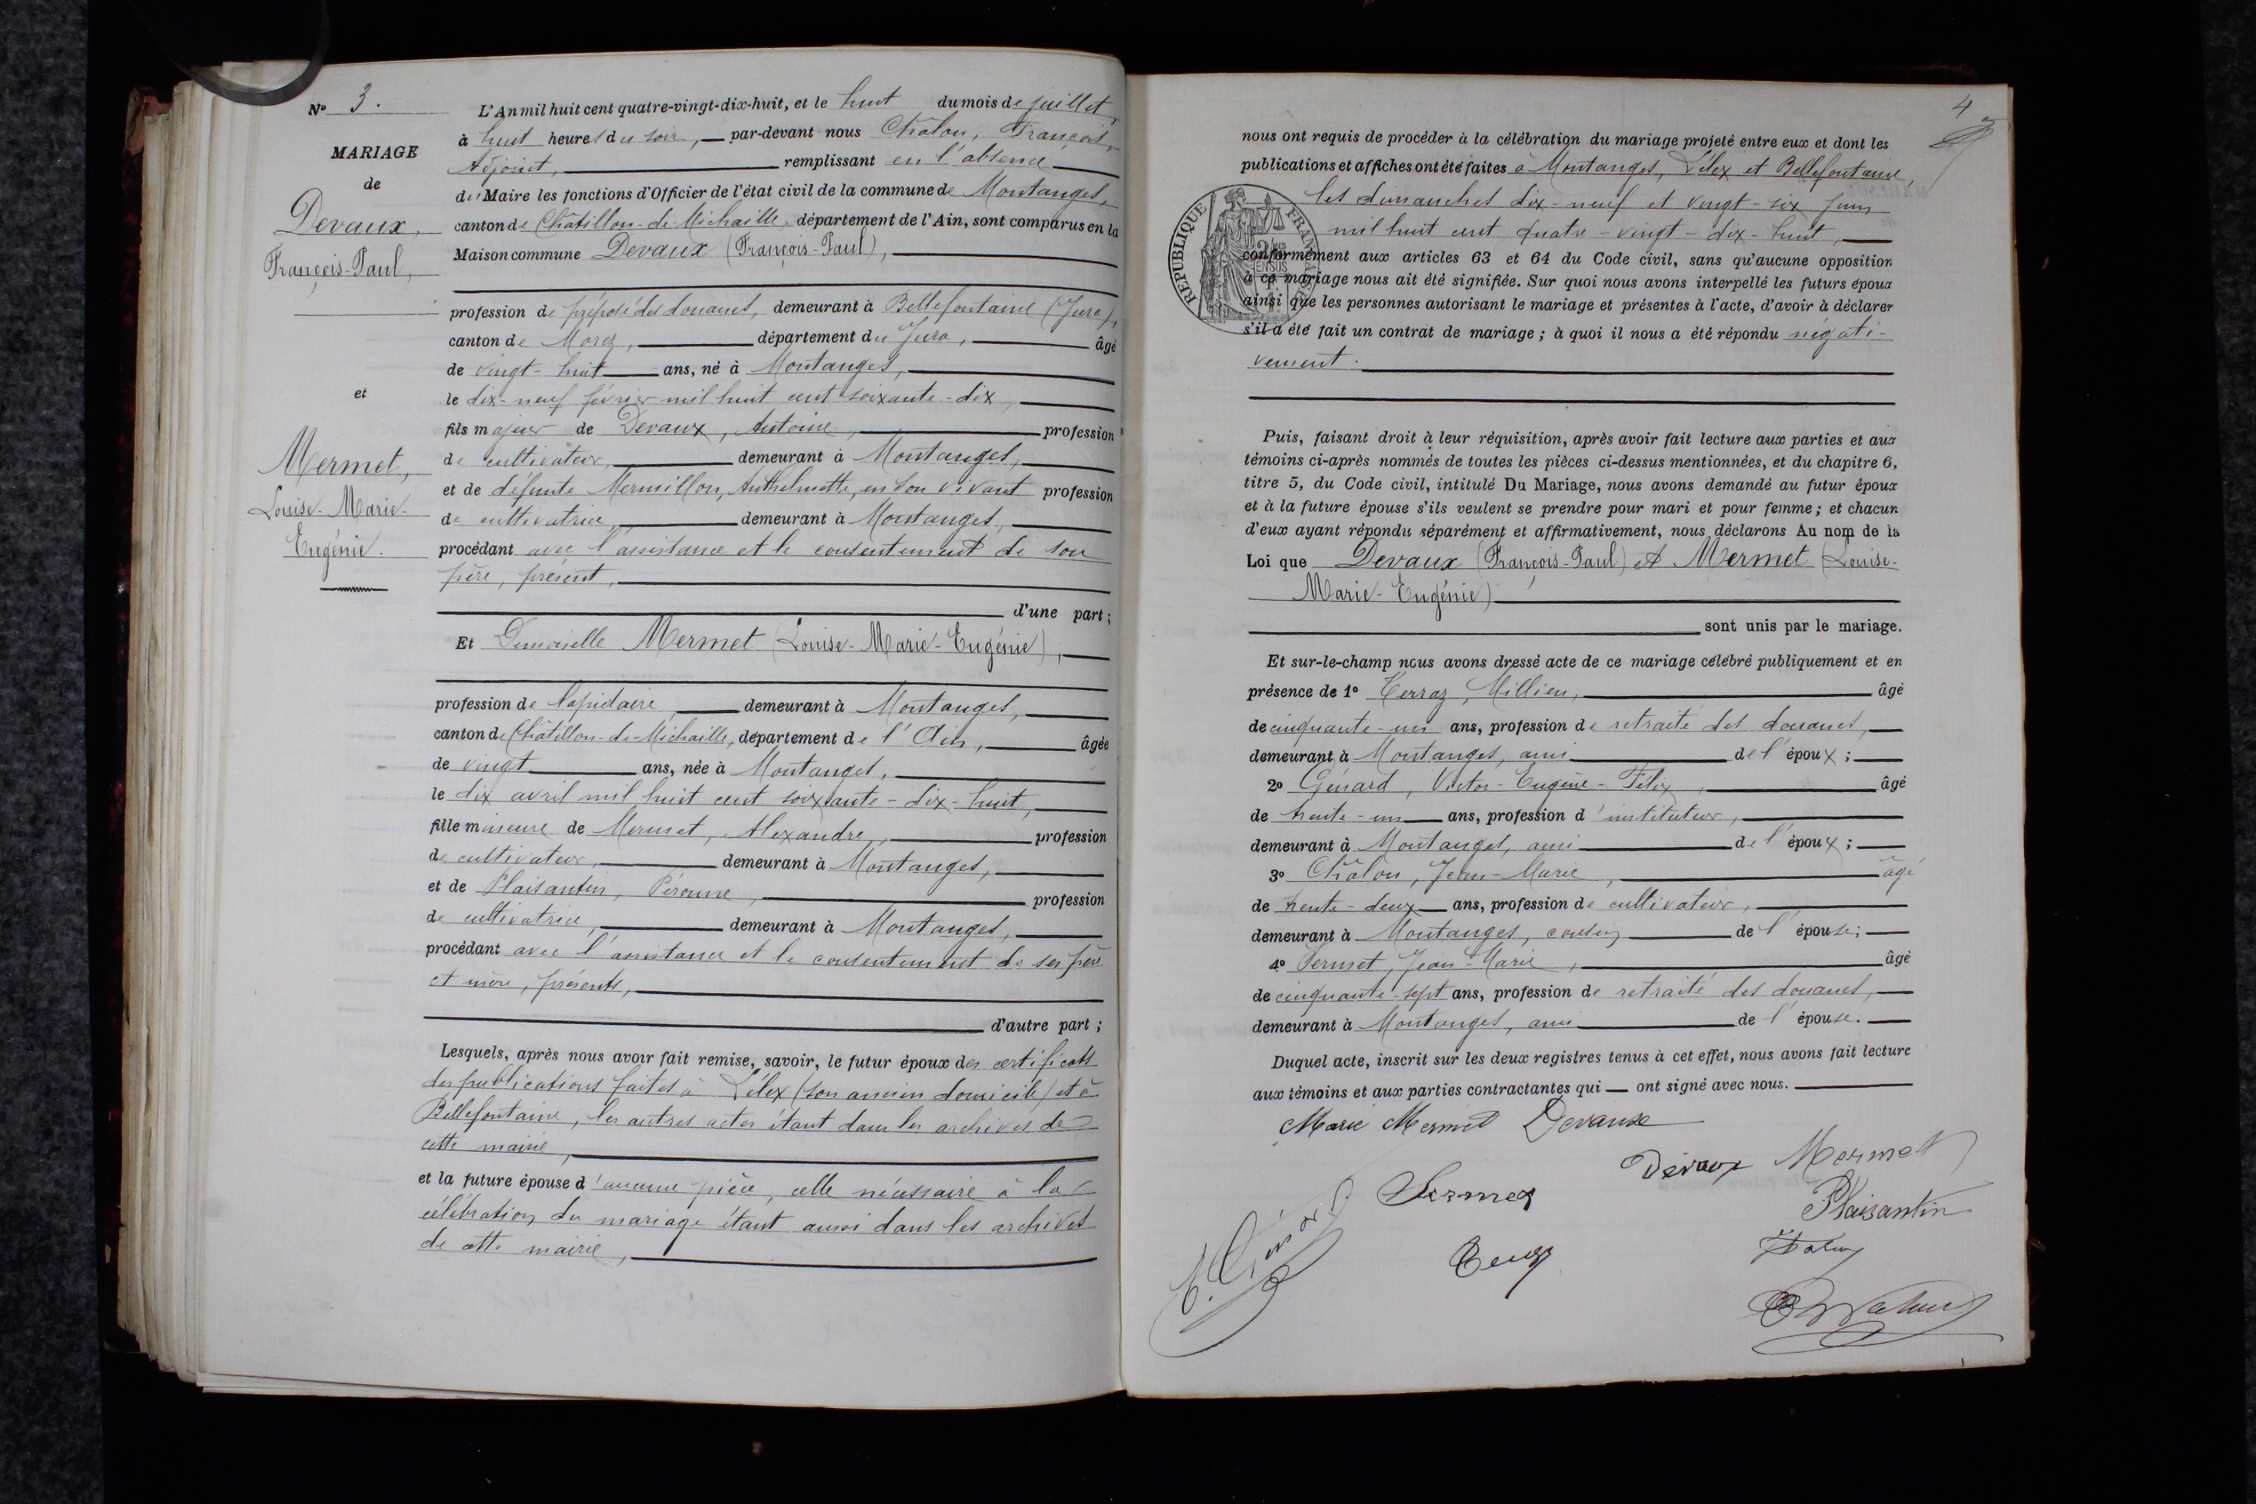 N° 3.
MARIAGE
de
Devaux,
François-Paul,
et
Mermet,
Louise-Marie-
Eugénie.
L'An mil huit cent quatre-vingt-dix-huit, et le huit du mois de juillet,
à huit heures du soir, par-devant nous Châlon, François,
Adjoint, remplissant en l'absence
du Maire les fonctions d'Officier de l'état civil de la commune de Montanges,
canton de Châtillon-de-Michaille, département de l'Ain, sont comparus en la
Maison commune Devaux (François-Paul),
profession de préposé des douanes, demeurant à Bellefontaine (Jura),
canton de Morez, département du Jura, âgé
de vingt-huit ans, né à Montanges,
le dix-neuf février mil huit cent soixante-dix,
fils majeur de Devaux, Antoine, profession
de cultivateur, demeurant à Montanges,
et de défunte Mermillon, Anthelmette, en son vivant profession
de cultivatrice, demeurant à Montanges,
procédant avec l'assistance et le consentement de son
père, présent,
d'une part ;
Et Demoiselle Mermet (Louise-Marie-Eugénie),
profession de lapidaire, demeurant à Montanges,
canton de Châtillon-de-Michaille, département de l'Ain, âgée
de vingt ans, née à Montanges,
le dix avril mil huit cent soixante-dix-huit,
fille mineure de Mermet, Alexandre, profession
de cultivateur, demeurant à Montanges,
et de Plaisantin, Péronne, profession
de cultivatrice, demeurant à Montanges,
procédant avec l'assistance et le consentement de ses père
et mère, présents,
d'autre part ;
Lesquels, après nous avoir fait remise, savoir, le futur époux des certificats
des publications faites à Lélex (son ancien domicile) et à
Bellefontaine, les autres actes étant dans les archives de
cette mairie,
et la future épouse d'aucune pièce, celle nécessaire à la
célébration du mariage étant aussi dans les archives
de cette mairie,
4
nous ont requis de procéder à la célébration du mariage projeté entre eux et dont les
publications et affiches ont été faites à Montanges, Lélex et Bellefontaine,
les dimanches dix-neuf et vingt-six juin
mil huit cent quatre-vingt-dix-huit,
RÉPUBLIQUE FRANÇAISE
conformément aux articles 63 et 64 du Code civil, sans qu'aucune opposition
à ce mariage nous ait été signifiée. Sur quoi nous avons interpellé les futurs époux
ainsi que les personnes autorisant le mariage et présentes à l'acte, d'avoir à déclarer
s'il a été fait un contrat de mariage ; à quoi il nous a été répondu négati-
vement.
Puis, faisant droit à leur réquisition, après avoir fait lecture aux parties et aux
témoins ci-après nommés de toutes les pièces ci-dessus mentionnées, et du chapitre 6,
titre 5, du Code civil, intitulé Du Mariage, nous avons demandé au futur époux
et à la future épouse s'ils veulent se prendre pour mari et pour femme ; et chacun
d'eux ayant répondu séparément et affirmativement, nous déclarons Au nom de la
Loi que Devaux (François-Paul) et Mermet (Louise-
Marie-Eugénie)
sont unis par le mariage.
Et sur-le-champ nous avons dressé acte de ce mariage célébré publiquement et en
présence de 1° Terraz, Millien, âgé
de cinquante-un ans, profession de retraité des douanes,
demeurant à Montanges, ami de l'époux ;
2° Génard, Victor-Eugène-Félix, âgé
de trente-un ans, profession d'instituteur,
demeurant à Montanges, ami de l'époux ;
3° Châlon, Jean-Marie, âgé
de trente-deux ans, profession de cultivateur,
demeurant à Montanges, cousin de l'épouse ;
4° Permet, Jean-Marie, âgé
de cinquante-sept ans, profession de retraité des douanes,
demeurant à Montanges, ami de l'épouse.
Duquel acte, inscrit sur les deux registres tenus à cet effet, nous avons fait lecture
aux témoins et aux parties contractantes qui ont signé avec nous.
Marie Mermet Devaux
Devaux Mermet
Plaisantin
E. Génard